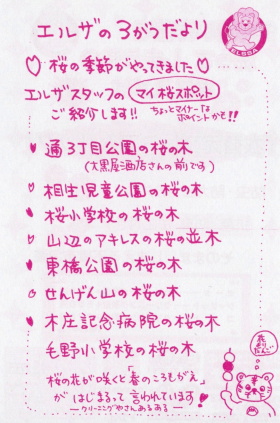 エルザの3がつだより
♡桜の季節がやってきました♡
エルザスタッフの マイ桜スポット
ご紹介します!! ちょっとマイナーな
ポイントかも!!
♥ 通3丁目公園の桜の木
(大黒屋酒店さんの前です)
♥ 相生児童公園の桜の木
♥ 桜小学校の桜の木
♥ 山辺のアキレスの桜の並木
♥ 東橋公園の桜の木
♥ せんげん山の桜の木
♥ 本庄記念病院の桜の木
毛野小学校の桜の木
桜の花が咲くと「春のころもがえ」
がはじまるって言われています!
―クリーニングやさんあるある―
花より
だんご